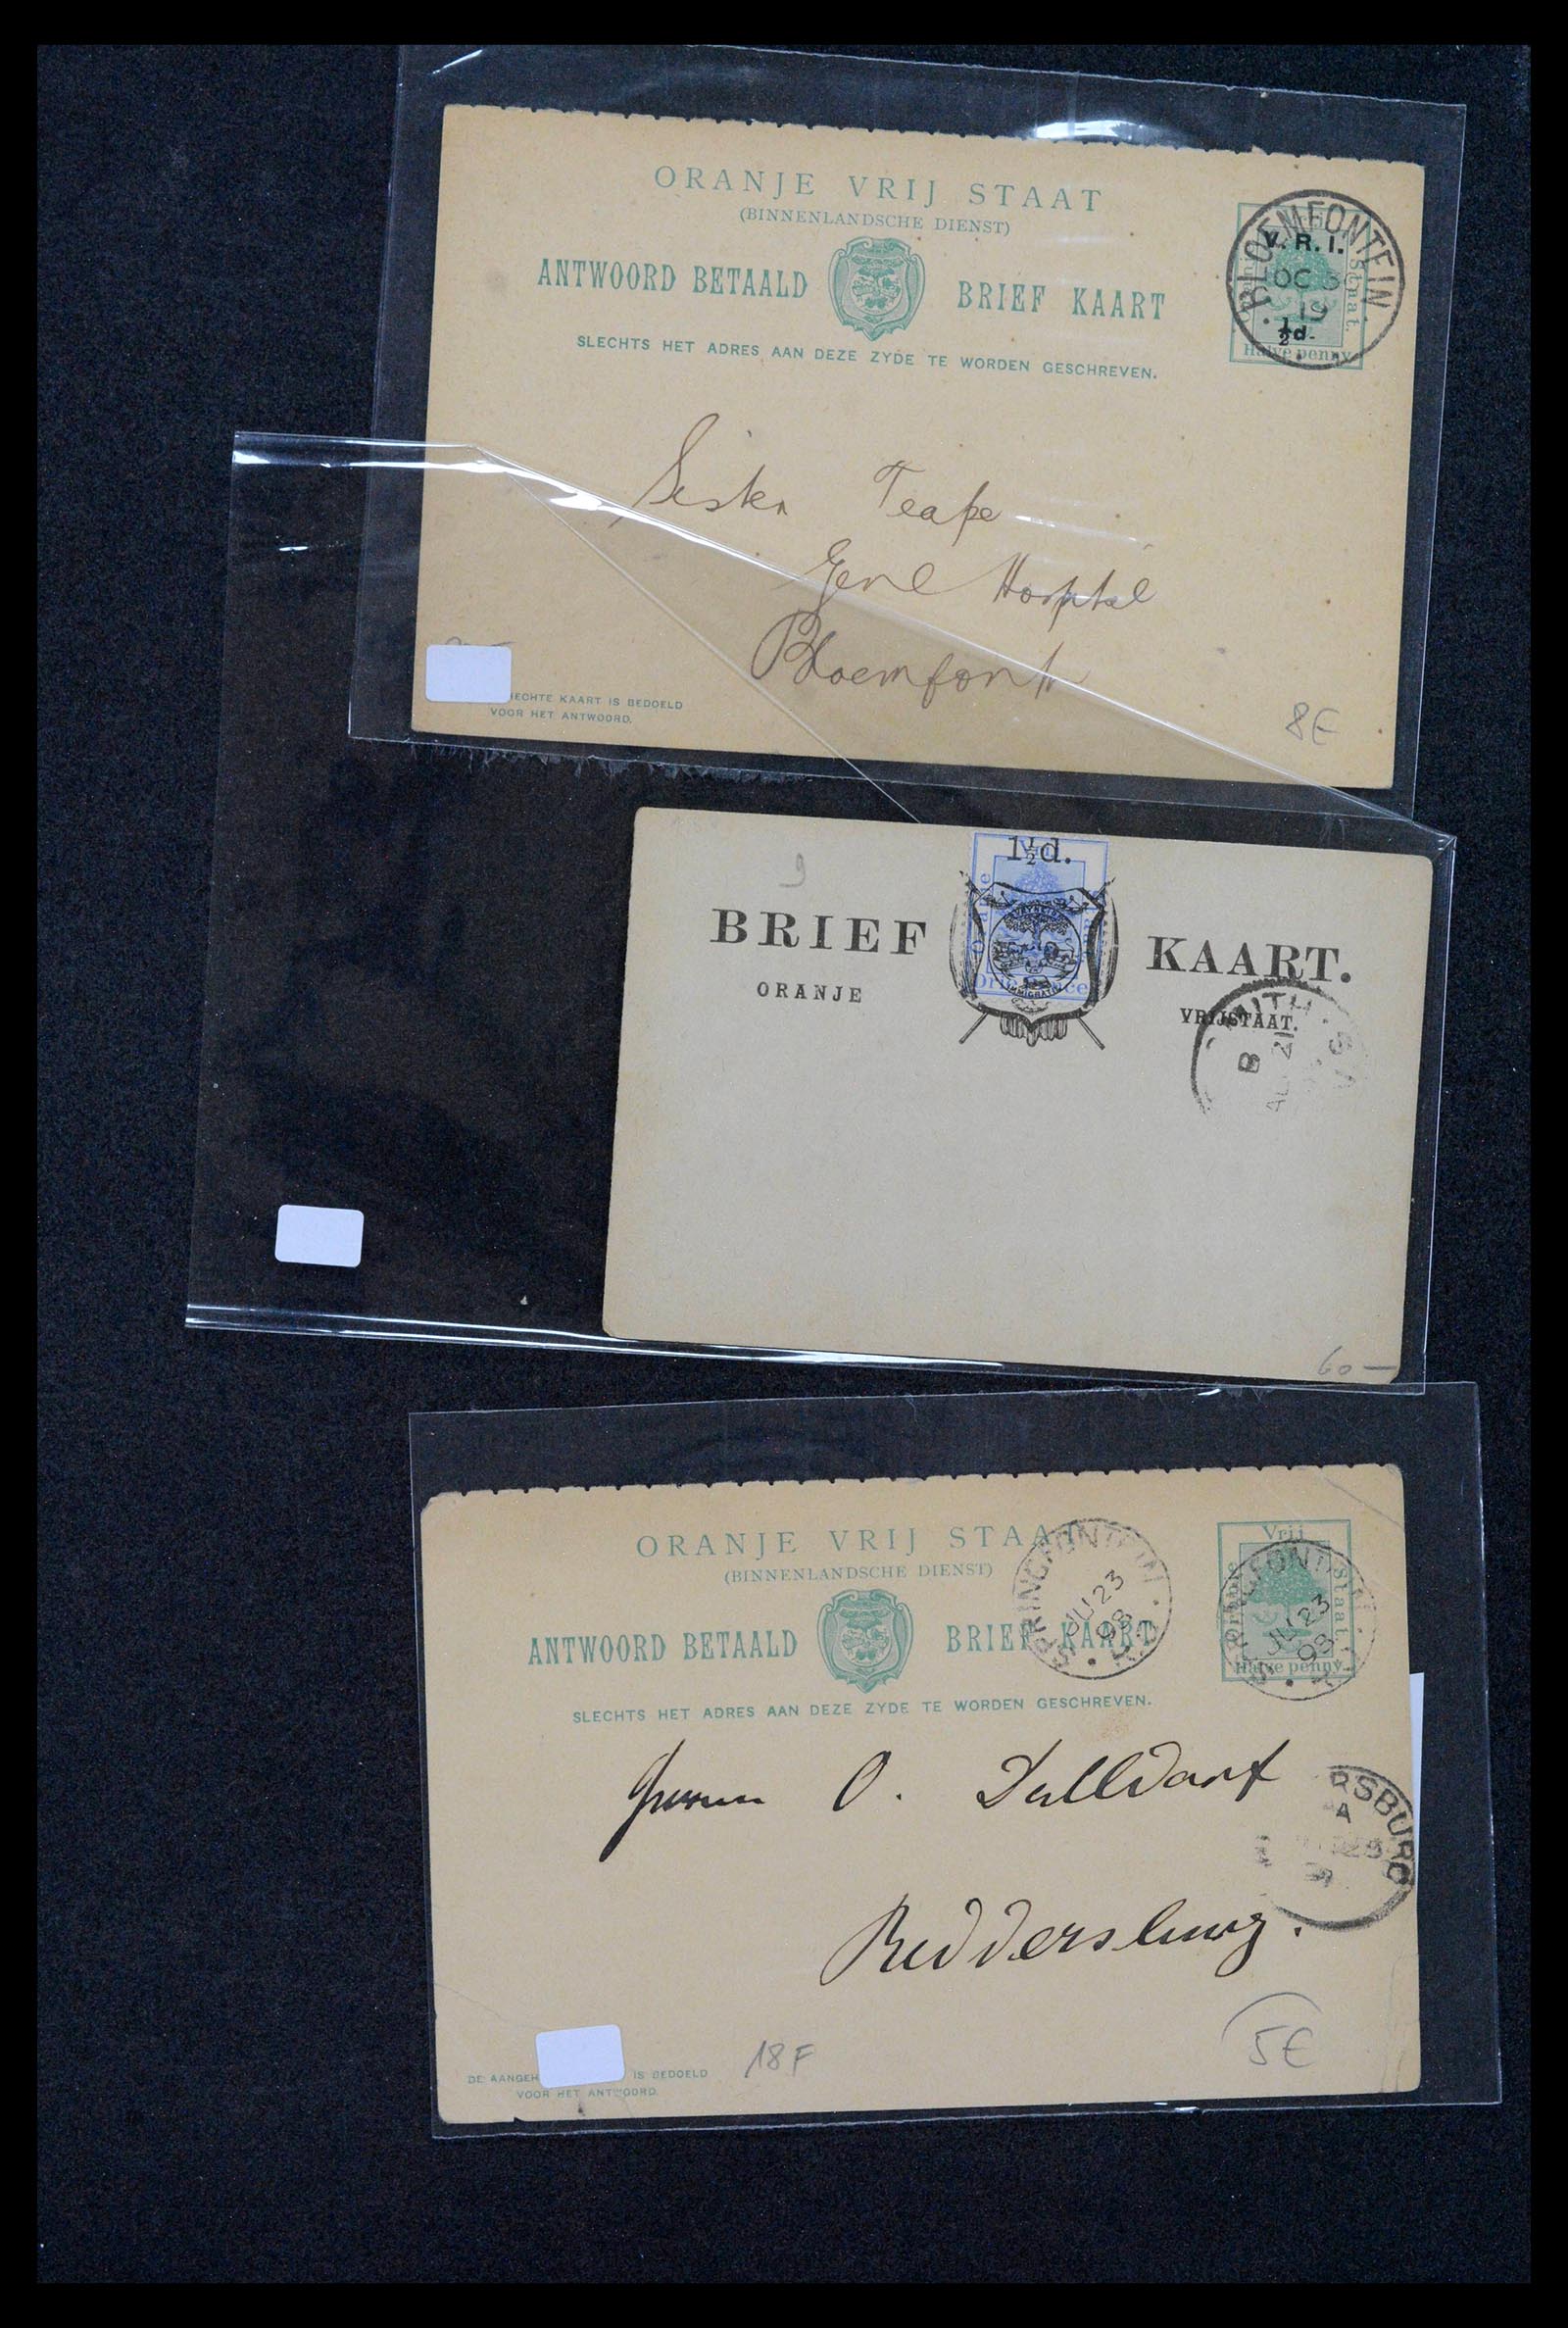 ORANJE VRIJ STAAT
(BINNENLANDSCHE DIENST)
ANTWOORD BETAALD BRIEF KAART
SLECHTS HET ADRES AAN DEZE ZYDE TE WORDEN GESCHREVEN.
BLOEMFONTEIN.
V. R. I.
OC
19
½d.
Staat.
Halve penny
Sister Teape
Genl Hosptal
Bloemfontn
HECHTE KAART IS BEDOELD
VOOR HET ANTWOORD.
8€
9
1½d.
BRIEF KAART.
ORANJE VRIJSTAAT.
IMMIGRATIE
B
21
60 —
ORANJE VRIJ STAAT
(BINNENLANDSCHE DIENST)
ANTWOORD BETAALD BRIEF KAART
SLECHTS HET ADRES AAN DEZE ZYDE TE WORDEN GESCHREVEN.
SPRINGFONTEIN
JU 23
98
Vrij
Oranje
Staat
Halve penny
JU 23
98
Herrn O. Dalldorf
Reddersburg.
RSBURG
DE AANGEH IS BEDOELD
VOOR HET ANTWOORD.
18F
5€